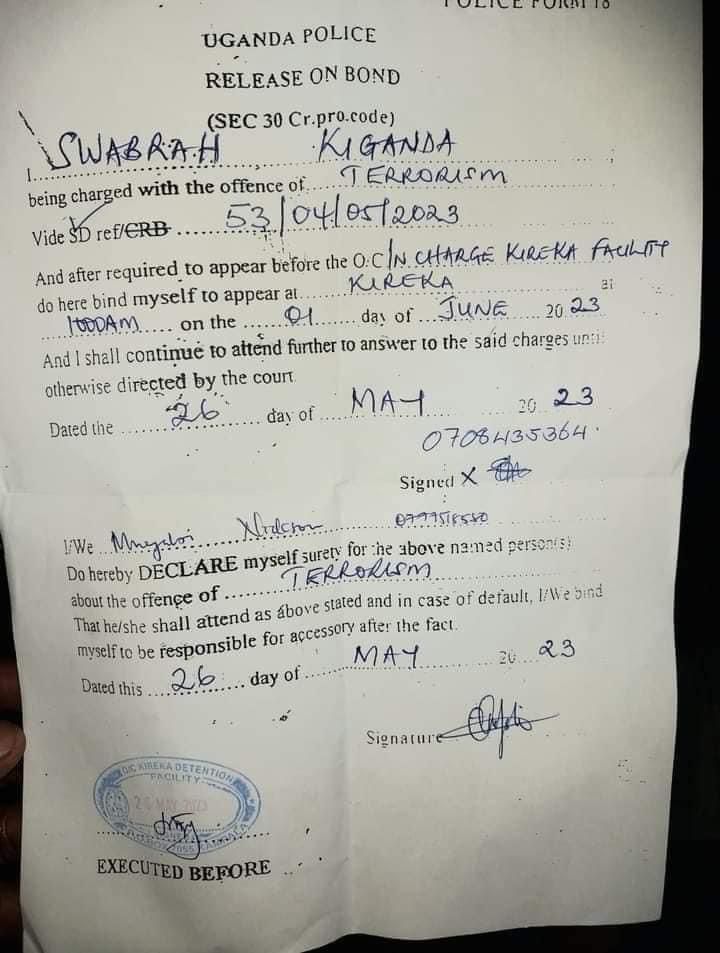 POLICE FORM 18
UGANDA POLICE
RELEASE ON BOND
(SEC 30 Cr.pro.code)
I SWABRAH KIGANDA
being charged with the offence of TERRORISM
Vide SD ref/CRB 53/04/05/2023
And after required to appear before the O.C IN CHARGE KIREKA FACILITY
do here bind myself to appear at KIREKA at
1000AM on the 01 day of JUNE 2023
And I shall continue to attend further to answer to the said charges until
otherwise directed by the court.
Dated the 26 day of MAY 2023
0708435364
Signed X
I/We
Do hereby DECLARE myself surety for the above named person(s)
about the offence of TERRORISM
That he/she shall attend as above stated and in case of default, I/We bind
myself to be responsible for accessory after the fact.
Dated this 26 day of MAY 2023
Signature
O/C KIREKA DETENTION
FACILITY
26 MAY 2023
EXECUTED BEFORE